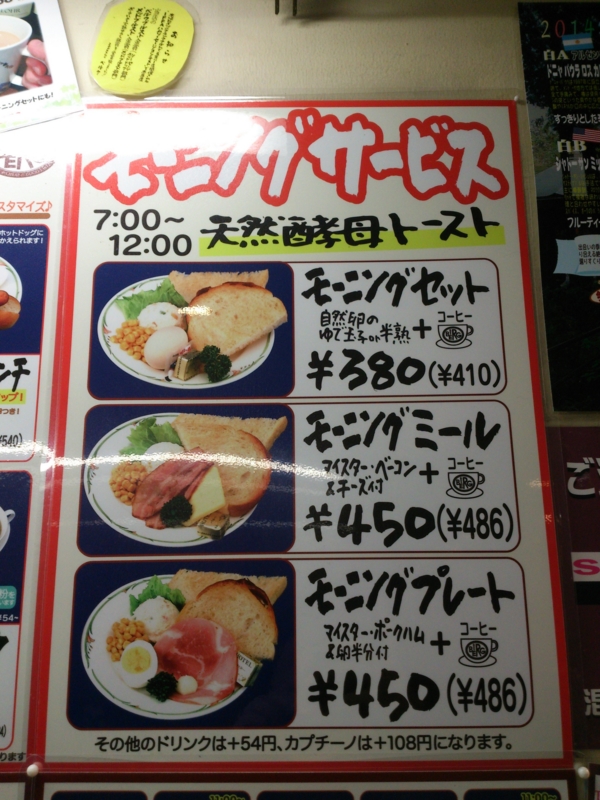 モーニングサービス
7:00～
12:00
天然酵母トースト
モーニングセット
自然卵の
ゆで玉子or半熟
+
コーヒー
¥380(¥410)
モーニングミール
マイスター・ベーコン
&チーズ付
+
コーヒー
¥450(¥486)
モーニングプレート
マイスター・ポークハム
&卵半分付
+
コーヒー
¥450(¥486)
その他のドリンクは+54円、カプチーノは+108円になります。
ーニングセットにも!
スタマイズ♪
ホットドッグに
かえられます!
ンチ
ップ!
つき!
¥540)
白A
ドニャ パウラ ロス カ
すっきりとした
白B
シャトー サン ミッ
フルーティー
ご
S